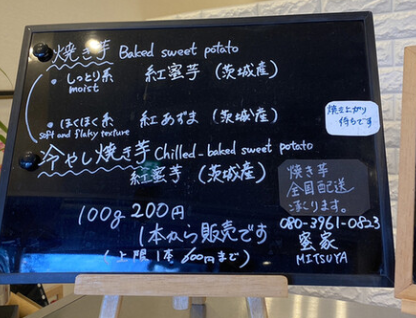 焼き芋 Baked sweet potato
・しっとり系 紅蜜芋 (茨城産)
moist
・ほくほく系 紅あずま (茨城産)
soft and flaky texture
焼き上がり
待ちです
冷やし焼き芋 Chilled-baked sweet potato
紅蜜芋 (茨城産)
焼き芋
全国配送
承ります。
100g 200円
1本から販売です
(上限1本 600円まで)
080-3961-0823
蜜家
MITSUYA